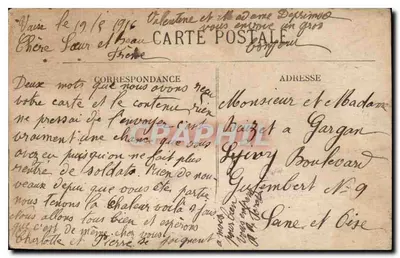 Vaise le 19/8 1916
Valentine et Madame
vous envoie un gros
bonjour
Chère Sœur et Beau
Frère
CARTE POSTALE
CORRESPONDANCE
ADRESSE
Deux mots que nous avons reçu
votre carte et le contenu rien
ne pressai de l'envoyer c'est
vraiment une chance que vous
avez eu puisqu'on ne fait plus
rentre de soldats Rien de nou
veaux depuis que vous ete partie
nous tenons la chaleur voilà
nous allons tous bien et espérons
que c'est de même chez vous
Charlotte et Pierre se joignent
a nous pour
vous
Monsieur et Madame
a Gargan
Livry Boulevard
Guimbert N=9
Seine et Oise
CPARAMA